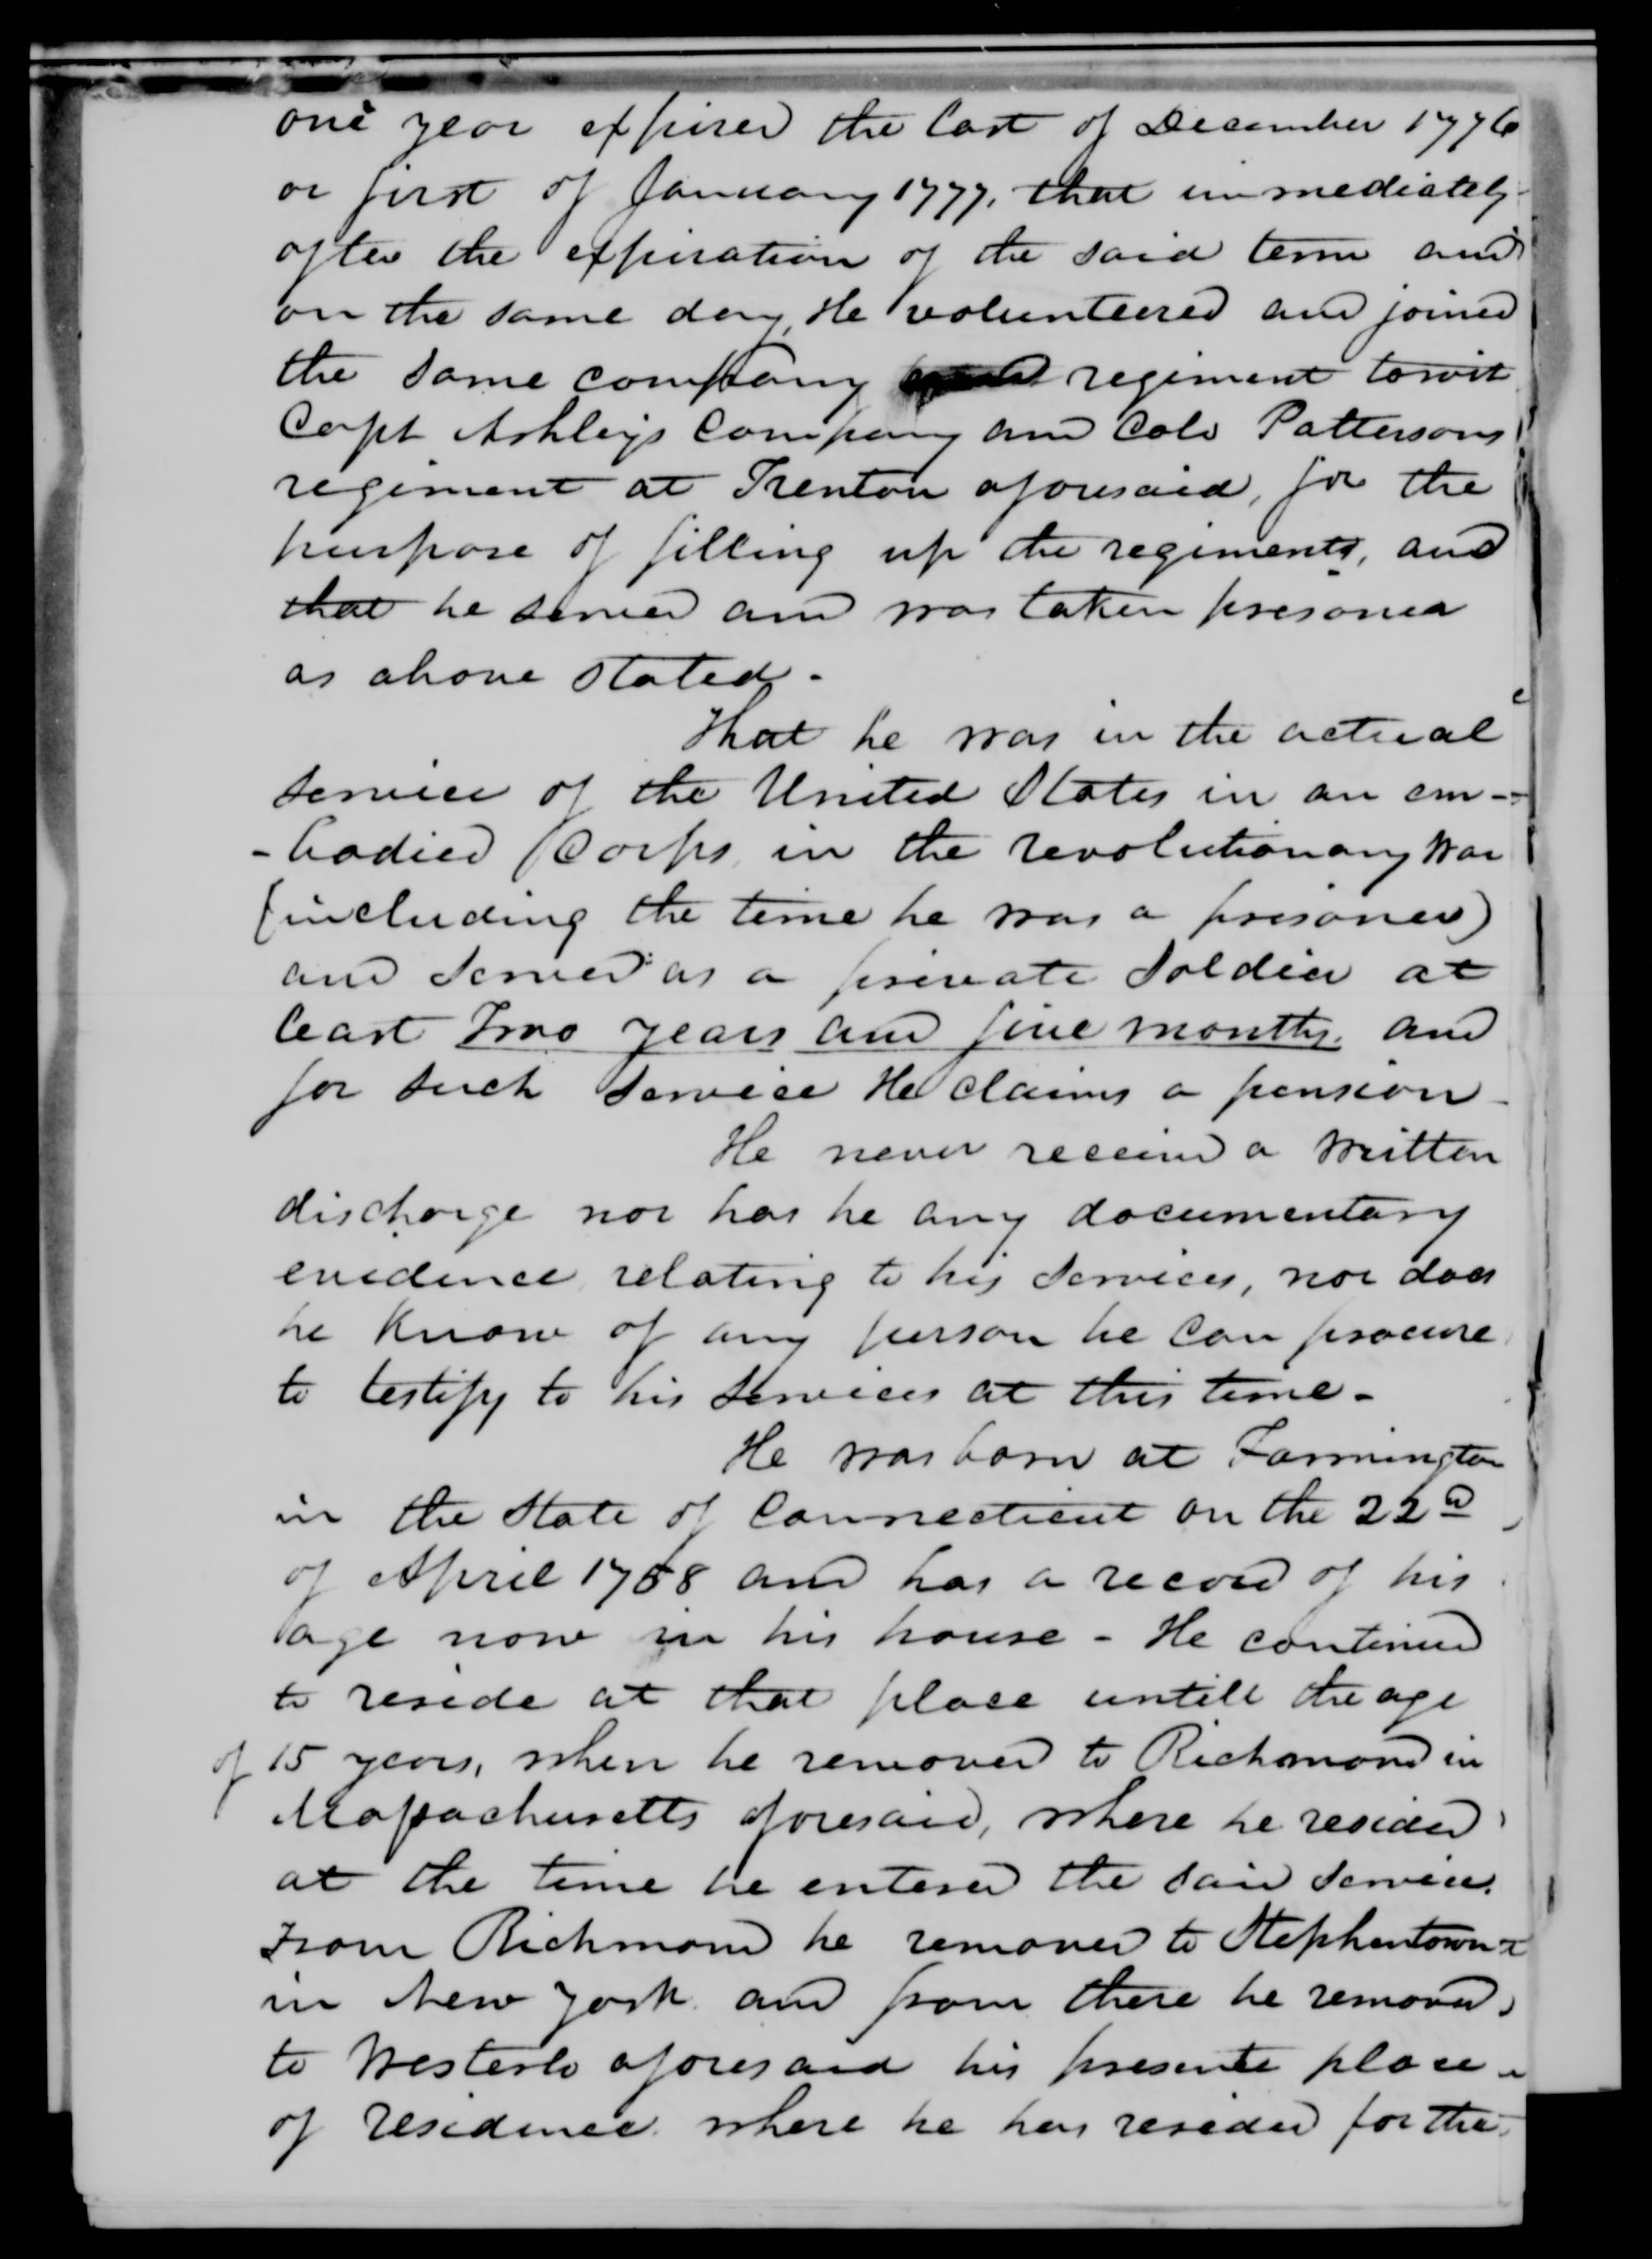 one year expired the last of December 1776
or first of January 1777, that immediately
after the expiration of the said term and
on the same day, He volunteered and joined
the same company regiment towit
Capt Ashleys Company and Colo Pattersons
regiment at Trenton aforesaid, for the
purpose of filling up the regiments, and
that he served and was taken prisoner
as above stated -
That he was in the actual
service of the United States in an em-
-bodied Corps in the revolutionary War
(including the time he was a prisoner)
and served as a private Soldier at
least Two years and five months. and
for such Service He claims a pension -
He never received a Written
discharge nor has he any documentary
evidence relating to his Services, nor does
he Know of any person he can procure
to testify to his Services at this time -
He was born at Farmington
in the State of Connecticut on the 22d
of April 1758 and has a record of his
age now in his house - He continued
to reside at that place untill the age
of 15 years, when he removed to Richmond in
Massachusetts aforesaid, where he resided
at the time he entered the said Service.
From Richmond he removed to Stephentown
in New York and from there he removed
to Westerlo aforesaid his presente place
of residence where he has resided for the